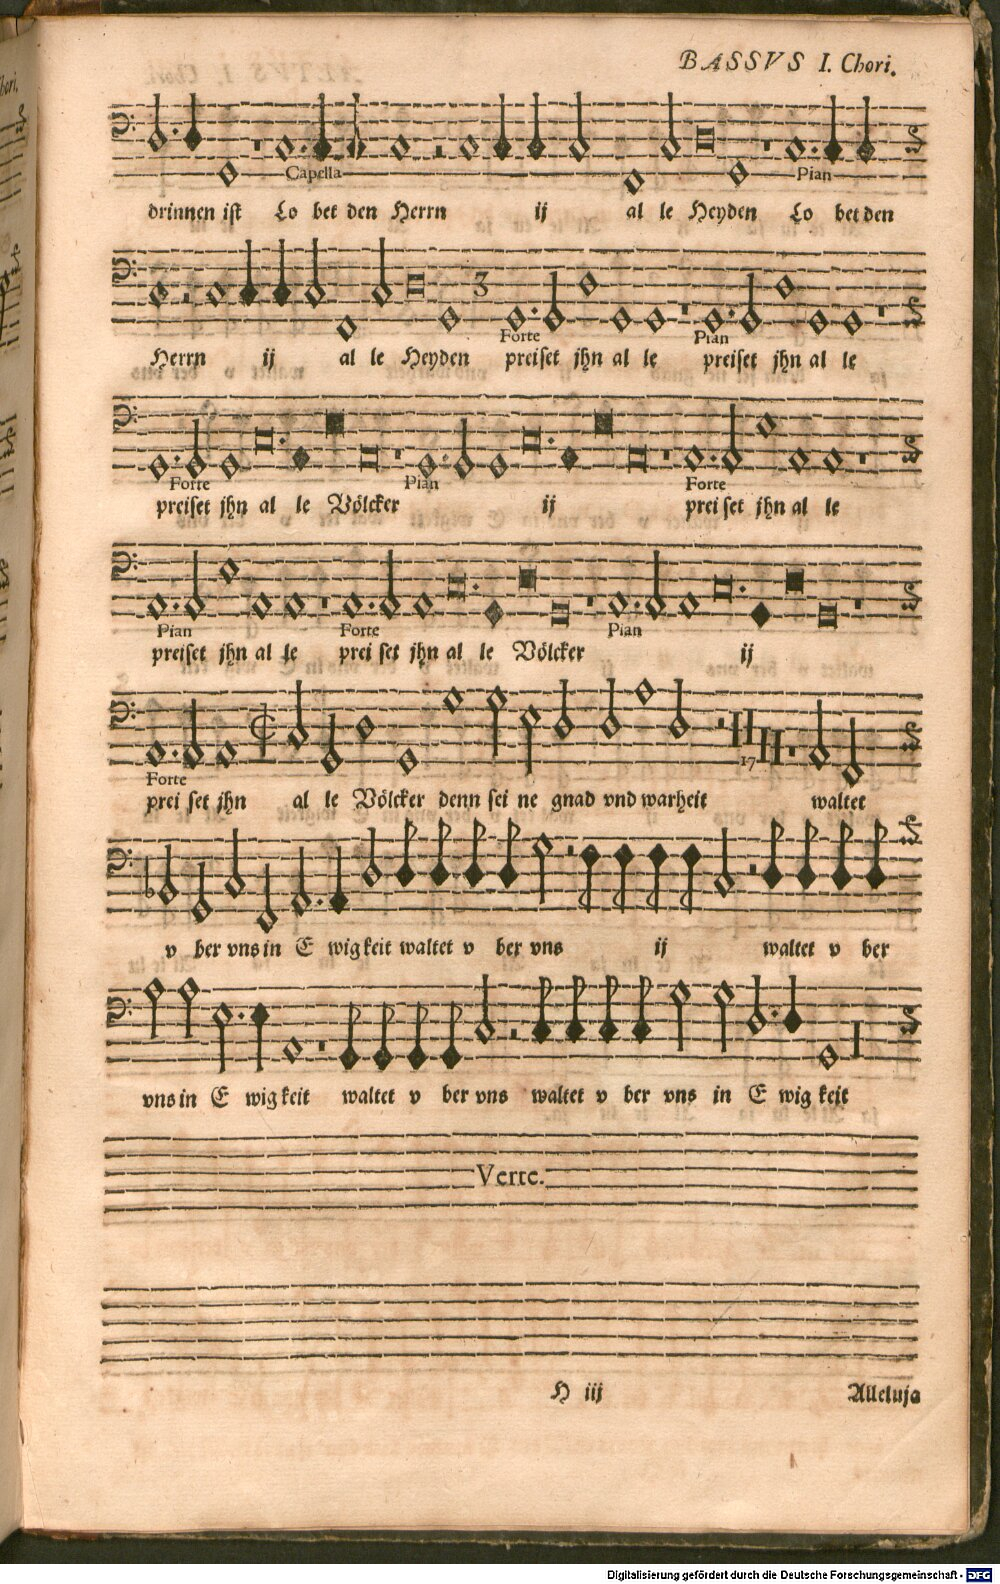 BASSVS I. Chori.
Capella Pian
drinnen ist Lo bet den Herrn ij al le Heyden Lo bet den
3
Forte Pian
Herrn ij al le Heyden preiset jhn al le preiset jhn al le
Forte Pian Forte
preiset jhn al le Völcker ij prei set jhn al le
Pian Forte Pian
preiset jhn al le prei set jhn al le Völcker ij
17
Forte
prei set jhn al le Völcker denn sei ne gnad vnd warheit waltet
v ber vns in E wig keit waltet v ber vns ij waltet v ber
vns in E wig keit waltet v ber vns waltet v ber vns in E wig keit
Verte.
H iij Alleluja
Digitalisierung gefördert durch die Deutsche Forschungsgemeinschaft - DFG